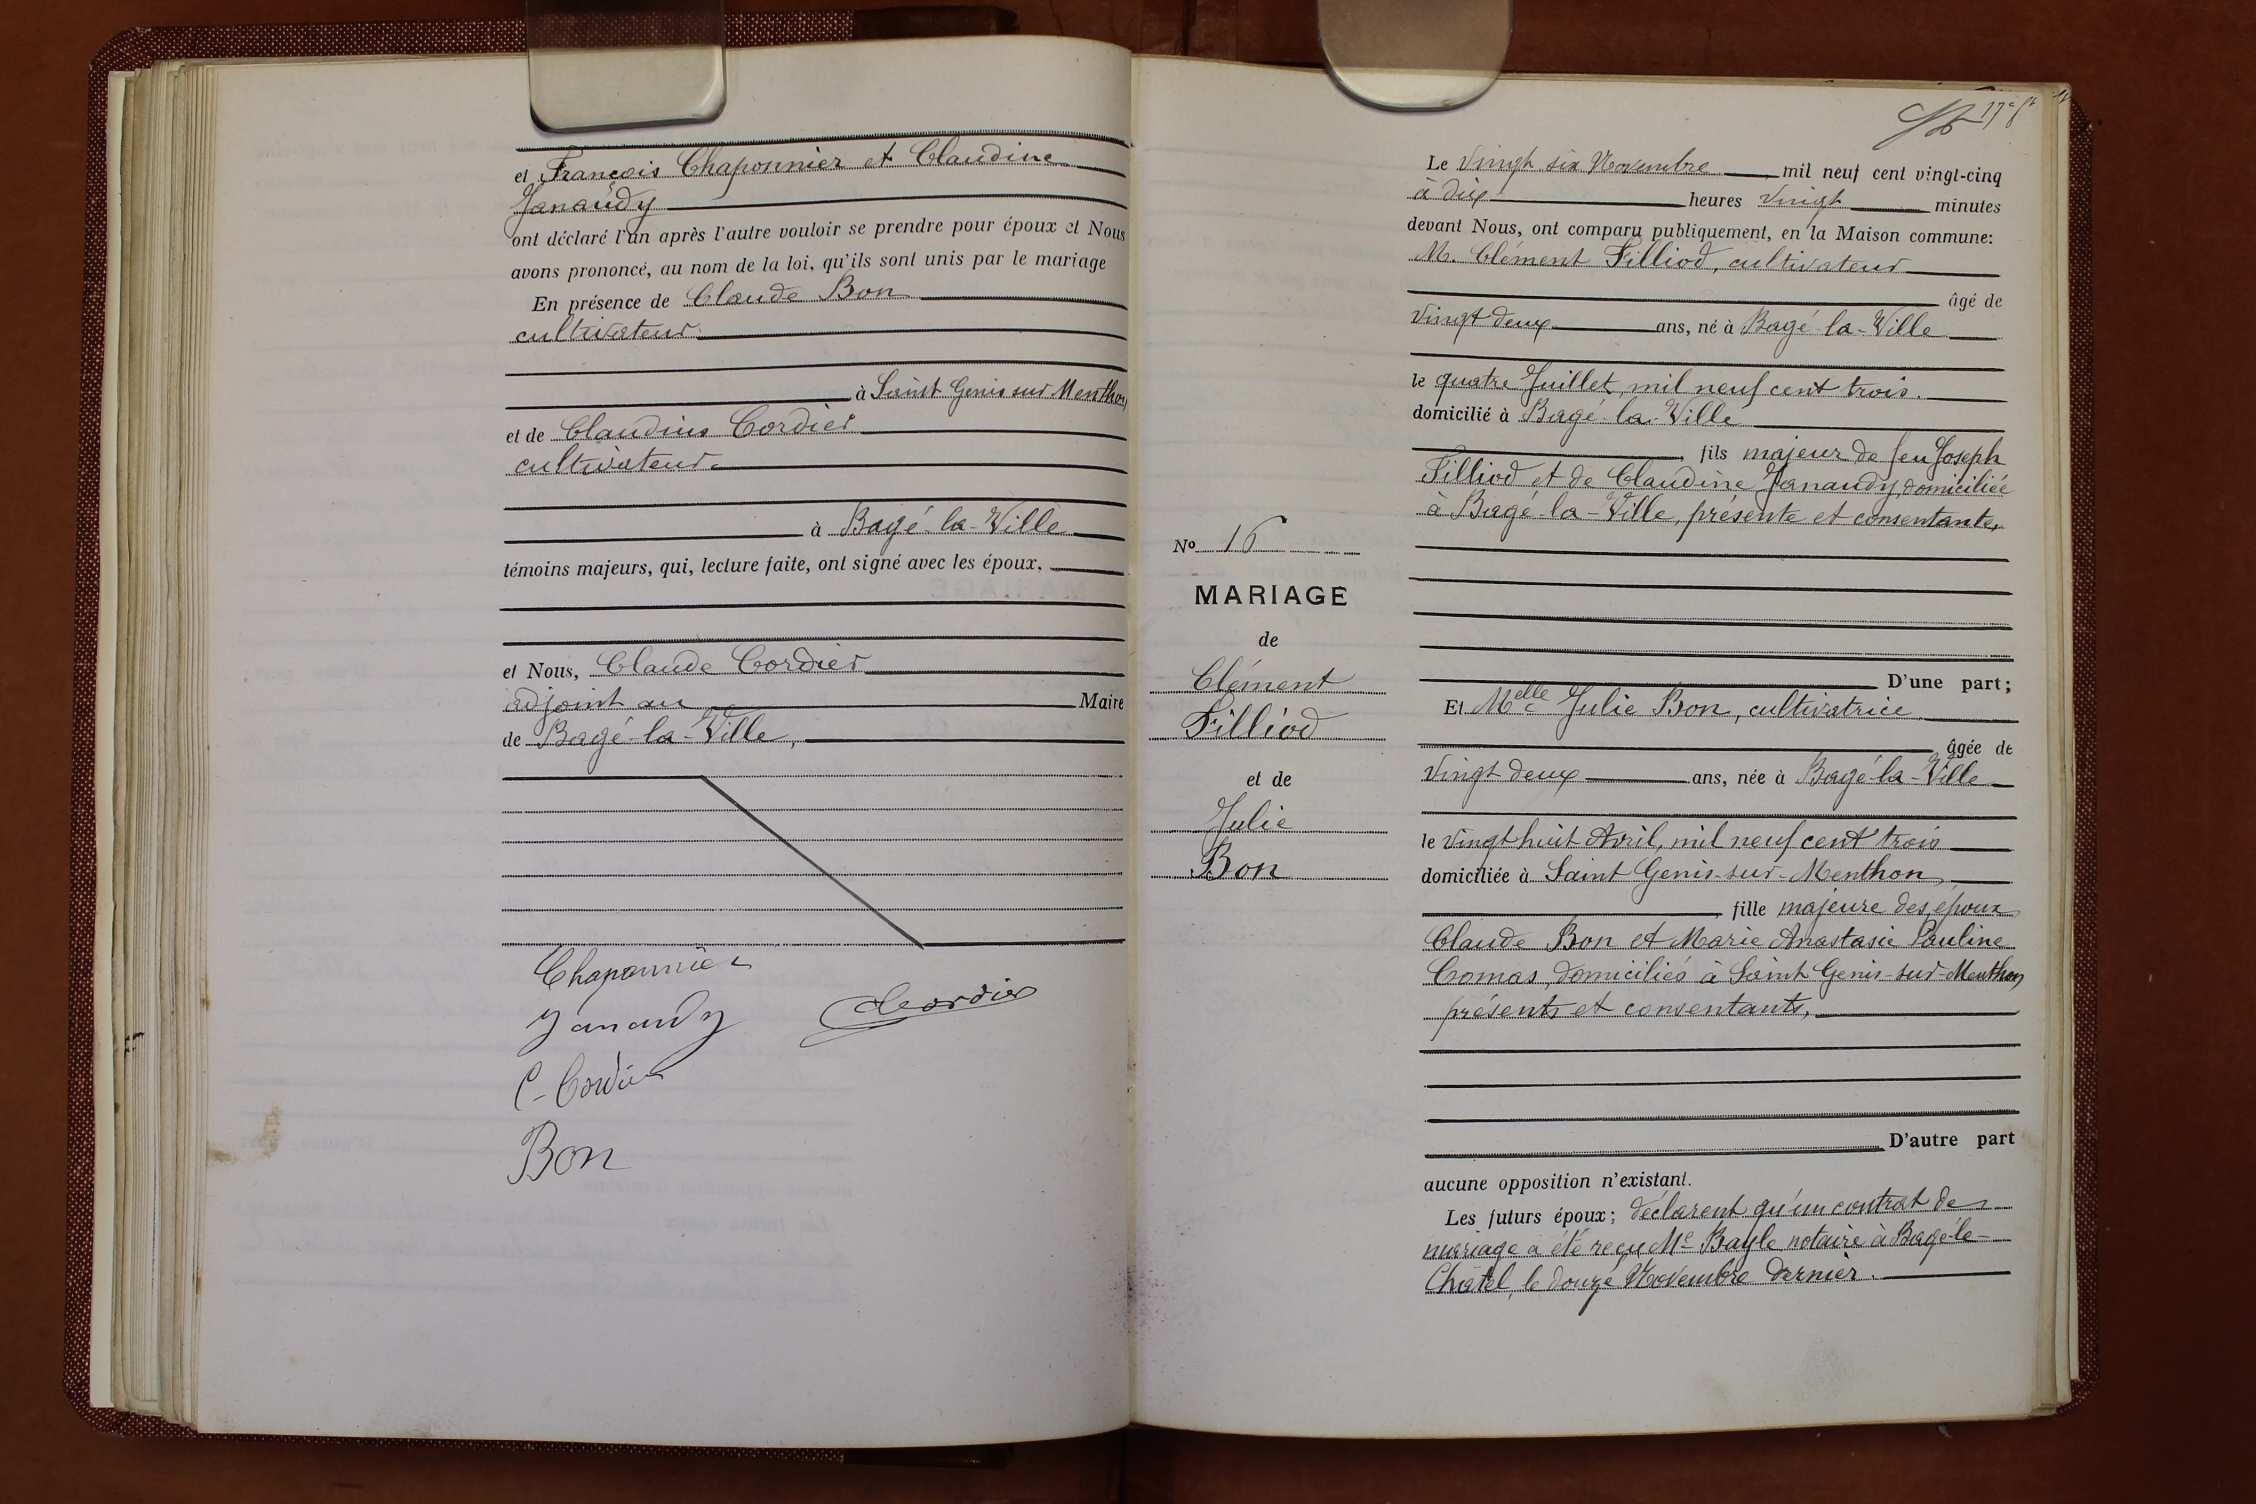 et François Chaponnier et Claudine
Janaudy
ont déclaré l'un après l'autre vouloir se prendre pour époux et Nous
avons prononcé, au nom de la loi, qu'ils sont unis par le mariage
En présence de Claude Bon
cultivateur
à Saint Genis sur Menthon
et de Claudius Cordier
cultivateur
à Bagé-la-Ville
témoins majeurs, qui, lecture faite, ont signé avec les époux,
et Nous, Claude Cordier
adjoint au Maire
de Bagé-la-Ville,
Chaponnier
Janaudy
C Cordier
C. Cordier
Bon
17e
Le vingt six Novembre mil neuf cent vingt-cinq
à dix heures vingt minutes
devant Nous, ont comparu publiquement, en la Maison commune:
M. Clément Filliod, cultivateur
âgé de
vingt deux ans, né à Bagé-la-Ville
le quatre Juillet, mil neuf cent trois.
domicilié à Bagé-la-Ville
fils majeur de feu Joseph
Filliod et de Claudine Janaudy, domiciliée
à Bagé-la-Ville, présente et consentante,
No 16
MARIAGE
de
Clément
Filliod
et de
Julie
Bon
D'une part;
Et Melle Julie Bon, cultivatrice
âgée de
vingt deux ans, née à Bagé-la-Ville
le vingt huit Avril, mil neuf cent trois
domiciliée à Saint Genis-sur-Menthon,
fille majeure des époux
Claude Bon et Marie Anastasie Pauline
Comas, domiciliés à Saint Genis-sur-Menthon
présents et consentants,
D'autre part
aucune opposition n'existant.
Les futurs époux; déclarent qu'un contrat de
mariage a été reçu Me Bayle notaire à Bagé-le-
Châtel, le douze Novembre dernier.